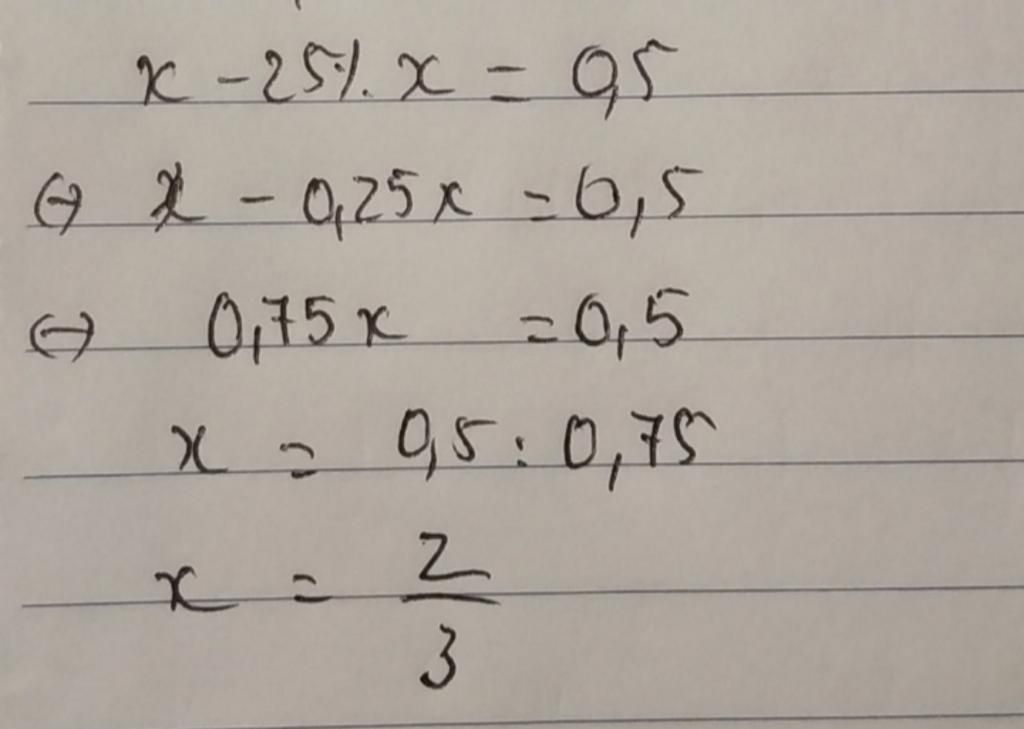 x - 25%. x = 0,5
⇔ x - 0,25x = 0,5
⇔ 0,75x = 0,5
x = 0,5 : 0,75
x = 2/3